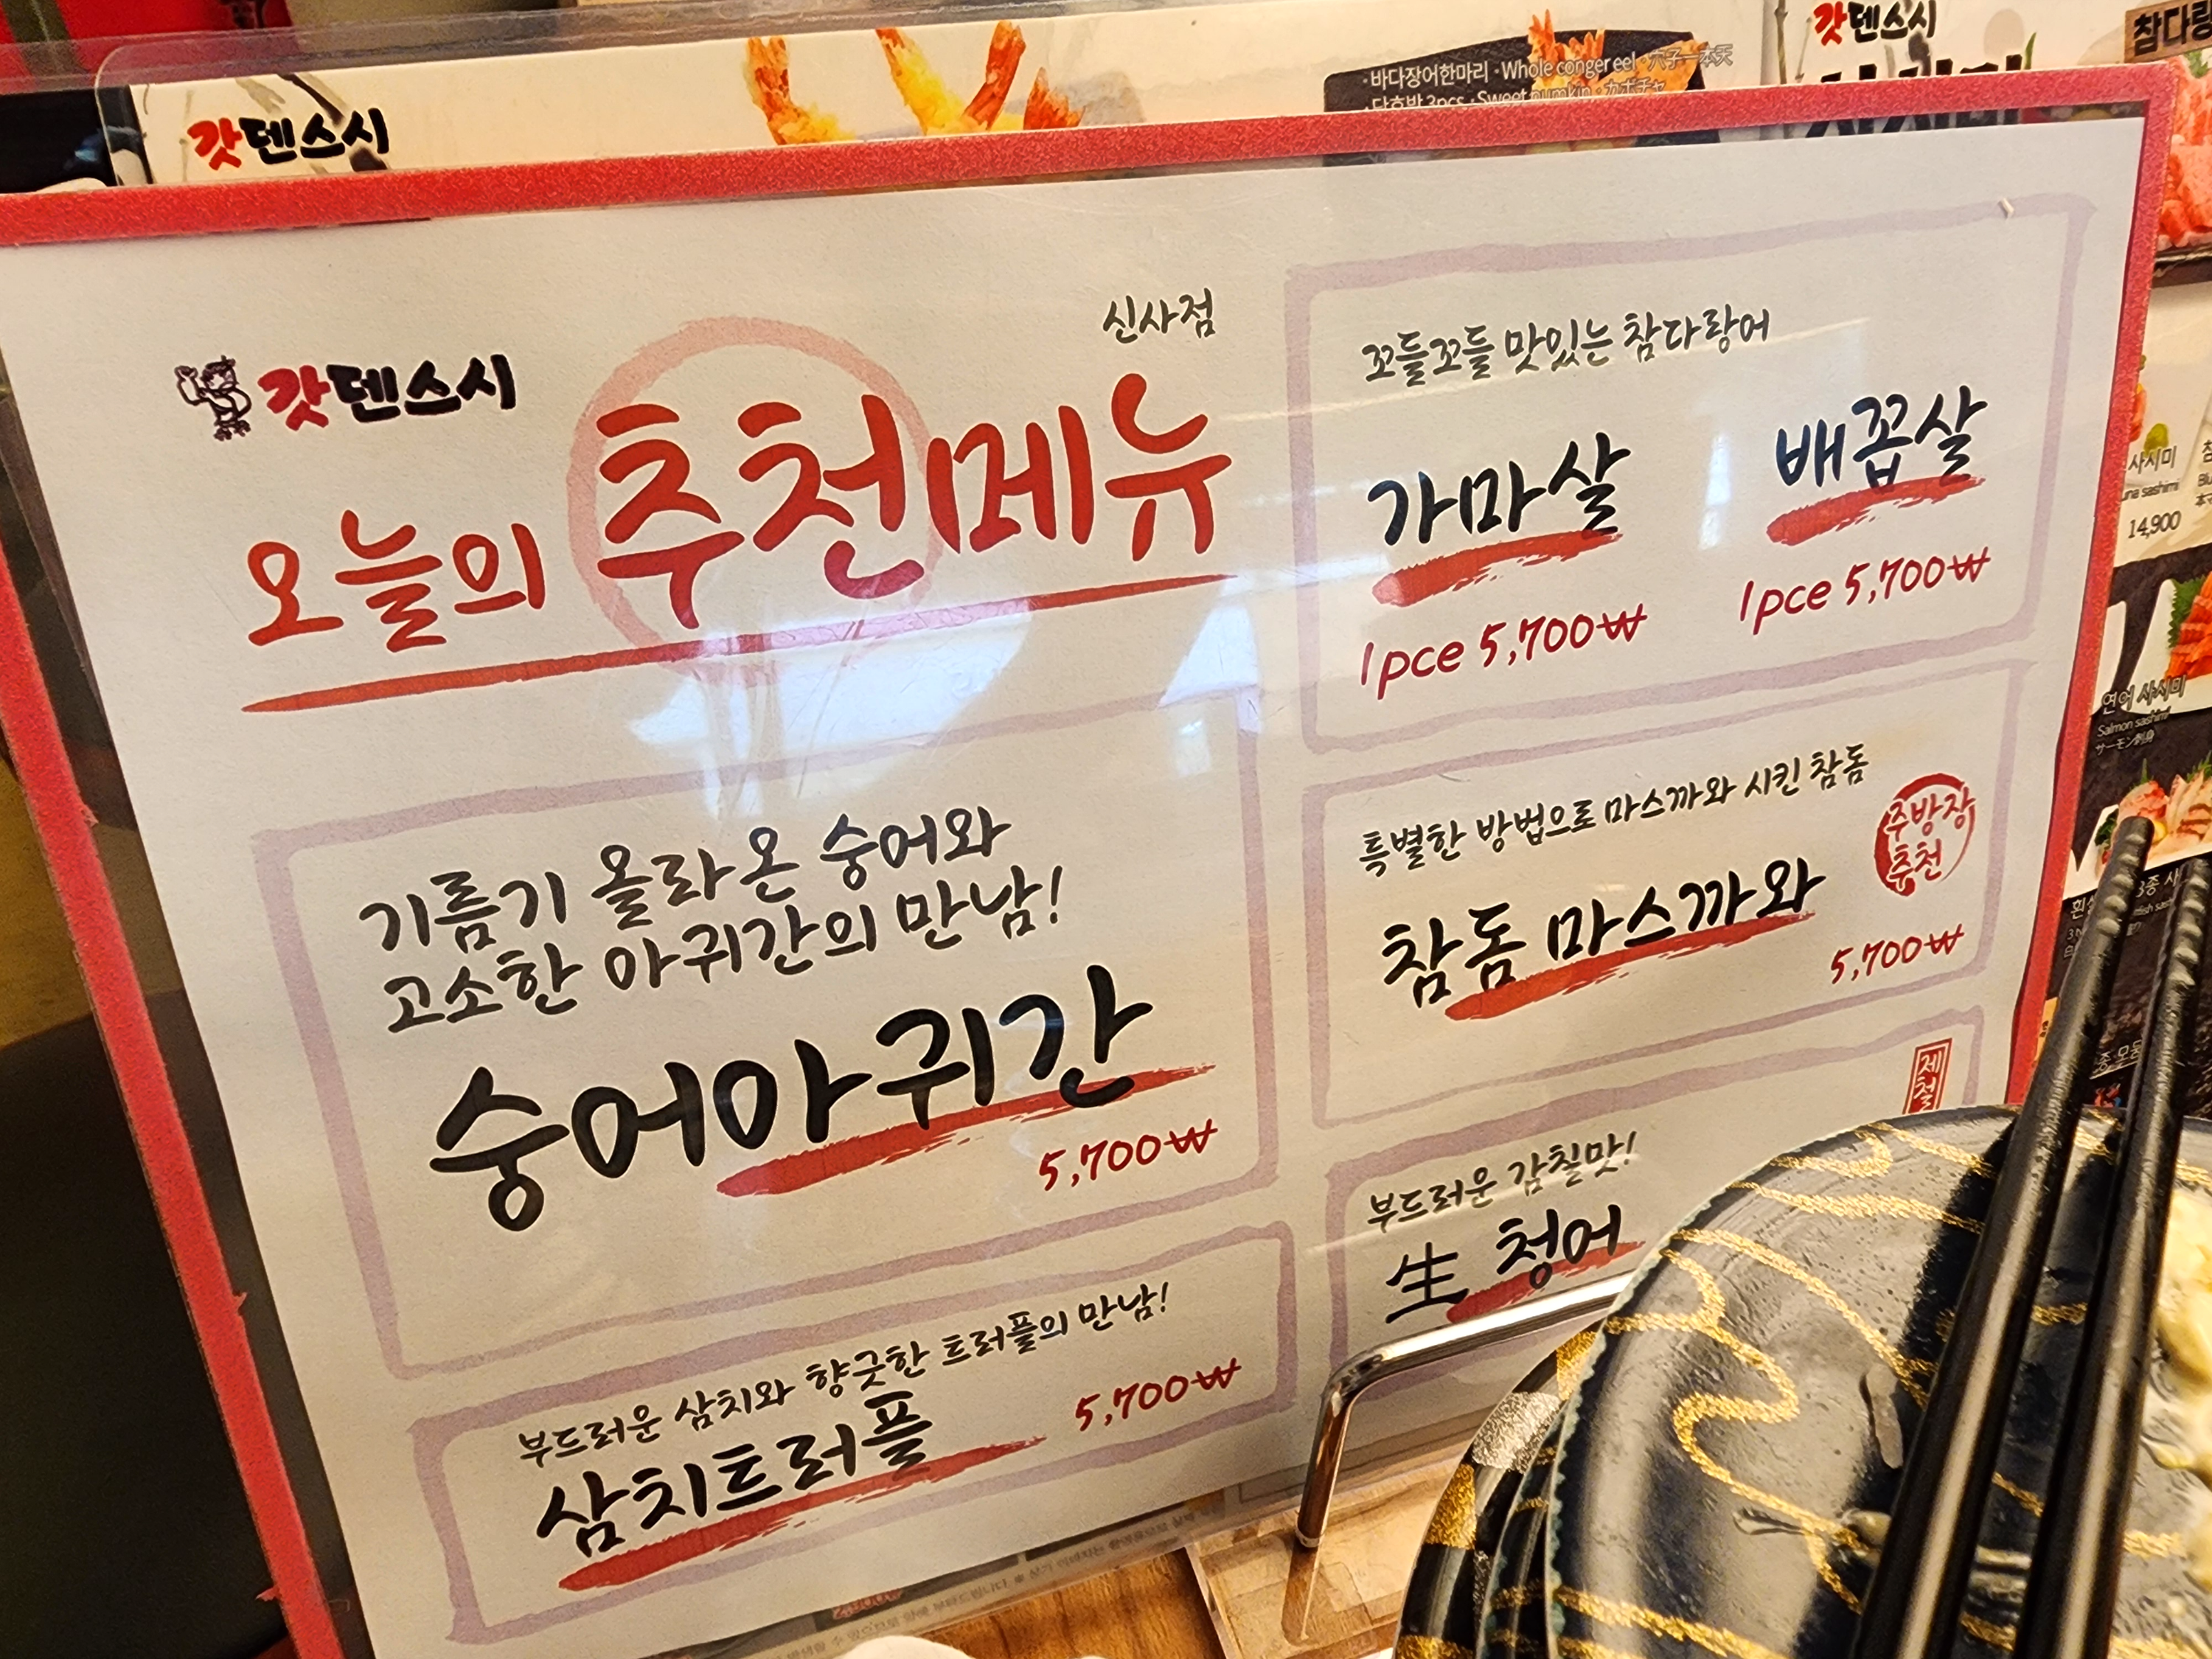 갓덴스시
·바다장어한마리 ·Whole conger eel ·穴子一本天
갓덴스시
갓덴스시
신사점
오늘의 추천메뉴
기름기 올라온 숭어와
고소한 아귀간의 만남!
숭어아귀간
5,700₩
부드러운 삼치와 향긋한 트러플의 만남!
삼치트러플
5,700₩
꼬들꼬들 맛있는 참다랑어
가마살
1pce 5,700₩
배꼽살
1pce 5,700₩
특별한 방법으로 마스까와 시킨 참돔
주방장
추천
참돔 마스까와
5,700₩
제철
부드러운 감칠맛!
生 청어
사시미
14,900
연어 사시미
Salmon sashimi
サーモン刺身